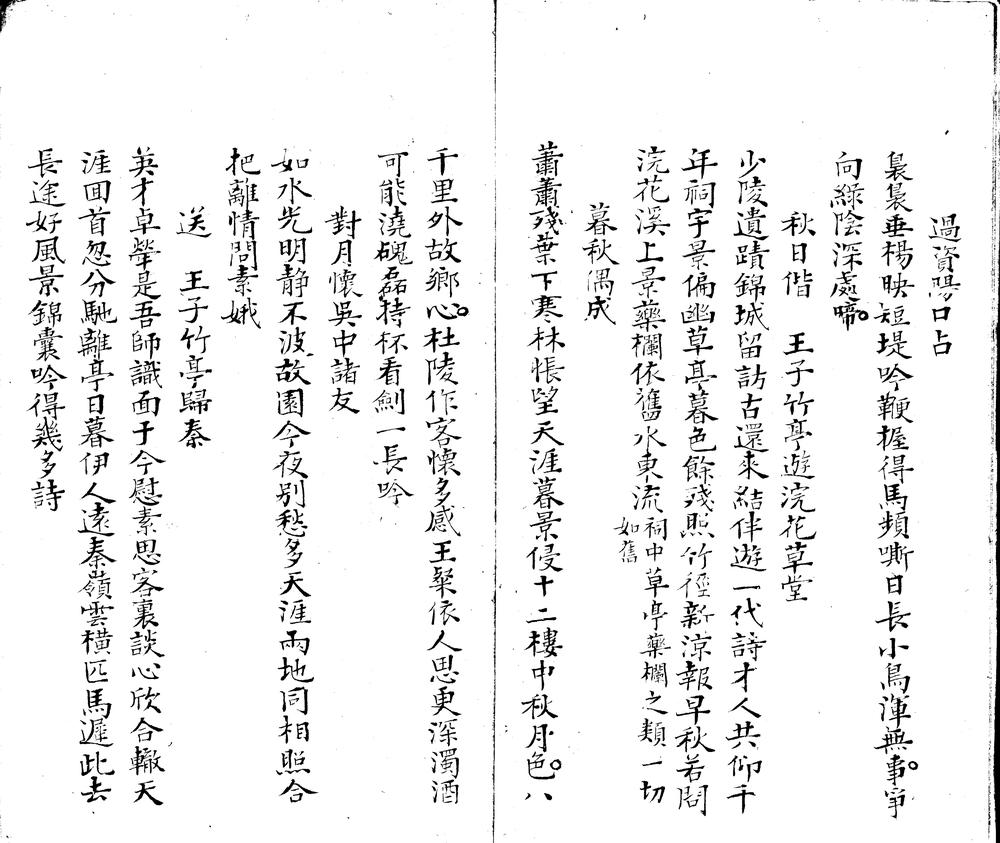 過資陽口占
裊裊垂楊映短堤吟鞭握得馬頻嘶日長小鳥渾無事爭
向綠陰深處啼
秋日偕　王子竹亭遊浣花草堂
少陵遺蹟錦城留訪古還來結伴遊一代詩才人共仰千
年祠宇景偏幽草亭暮色餘殘照竹徑新涼報早秋若問
浣花溪上景藥欄依舊水東流祠中草亭藥欄之類一切
如舊
暮秋偶成
蕭蕭殘葉下寒林悵望天涯暮景侵十二樓中秋月色八
千里外故鄉心杜陵作客懷多感王粲依人思更深濁酒
可能澆磈磊持杯看劍一長吟
對月懷吳中諸友
如水光明靜不波故園今夜別愁多天涯兩地同相照合
把離情問素娥
送　王子竹亭歸秦
英才卓犖是吾師識面于今慰素思客裏談心欣合轍天
涯回首忽分馳離亭日暮伊人遠秦嶺雲橫匹馬遲此去
長途好風景錦囊吟得幾多詩